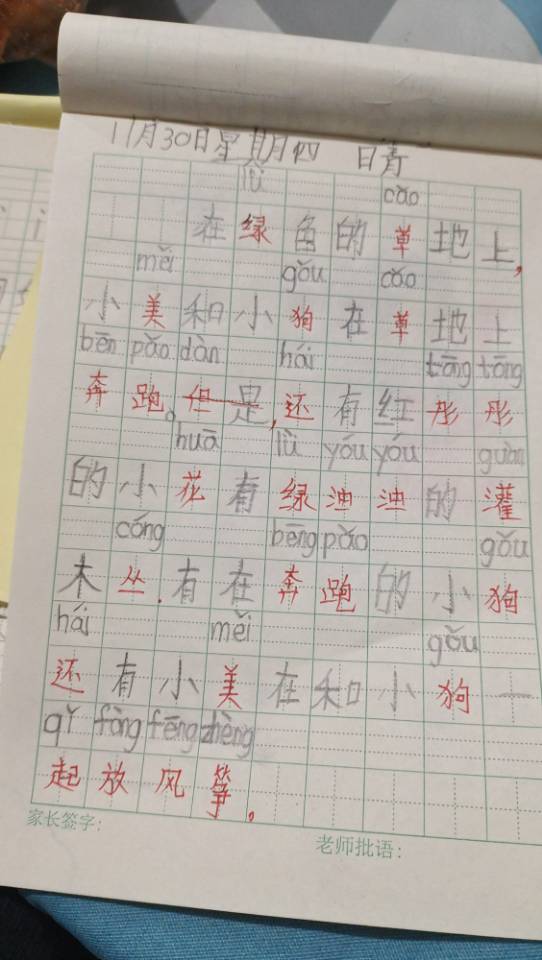 11月30日星期四 日青
lǜ cǎo
在绿鱼的草地上,
měi gǒu cǎo
小美和小狗在草地上
bēn pǎo dàn hái tōng tōng
奔跑。但是,还有红彤彤
huā lǜ yóu yóu guàn
的小花有绿油油的灌
cóng bēng pǎo gǒu
木丛.有在奔跑的小狗
hái měi gǒu
还有小美在和小狗一
qǐ fàng fēng zhèng
起放风筝。
家长签字:
老师批语: